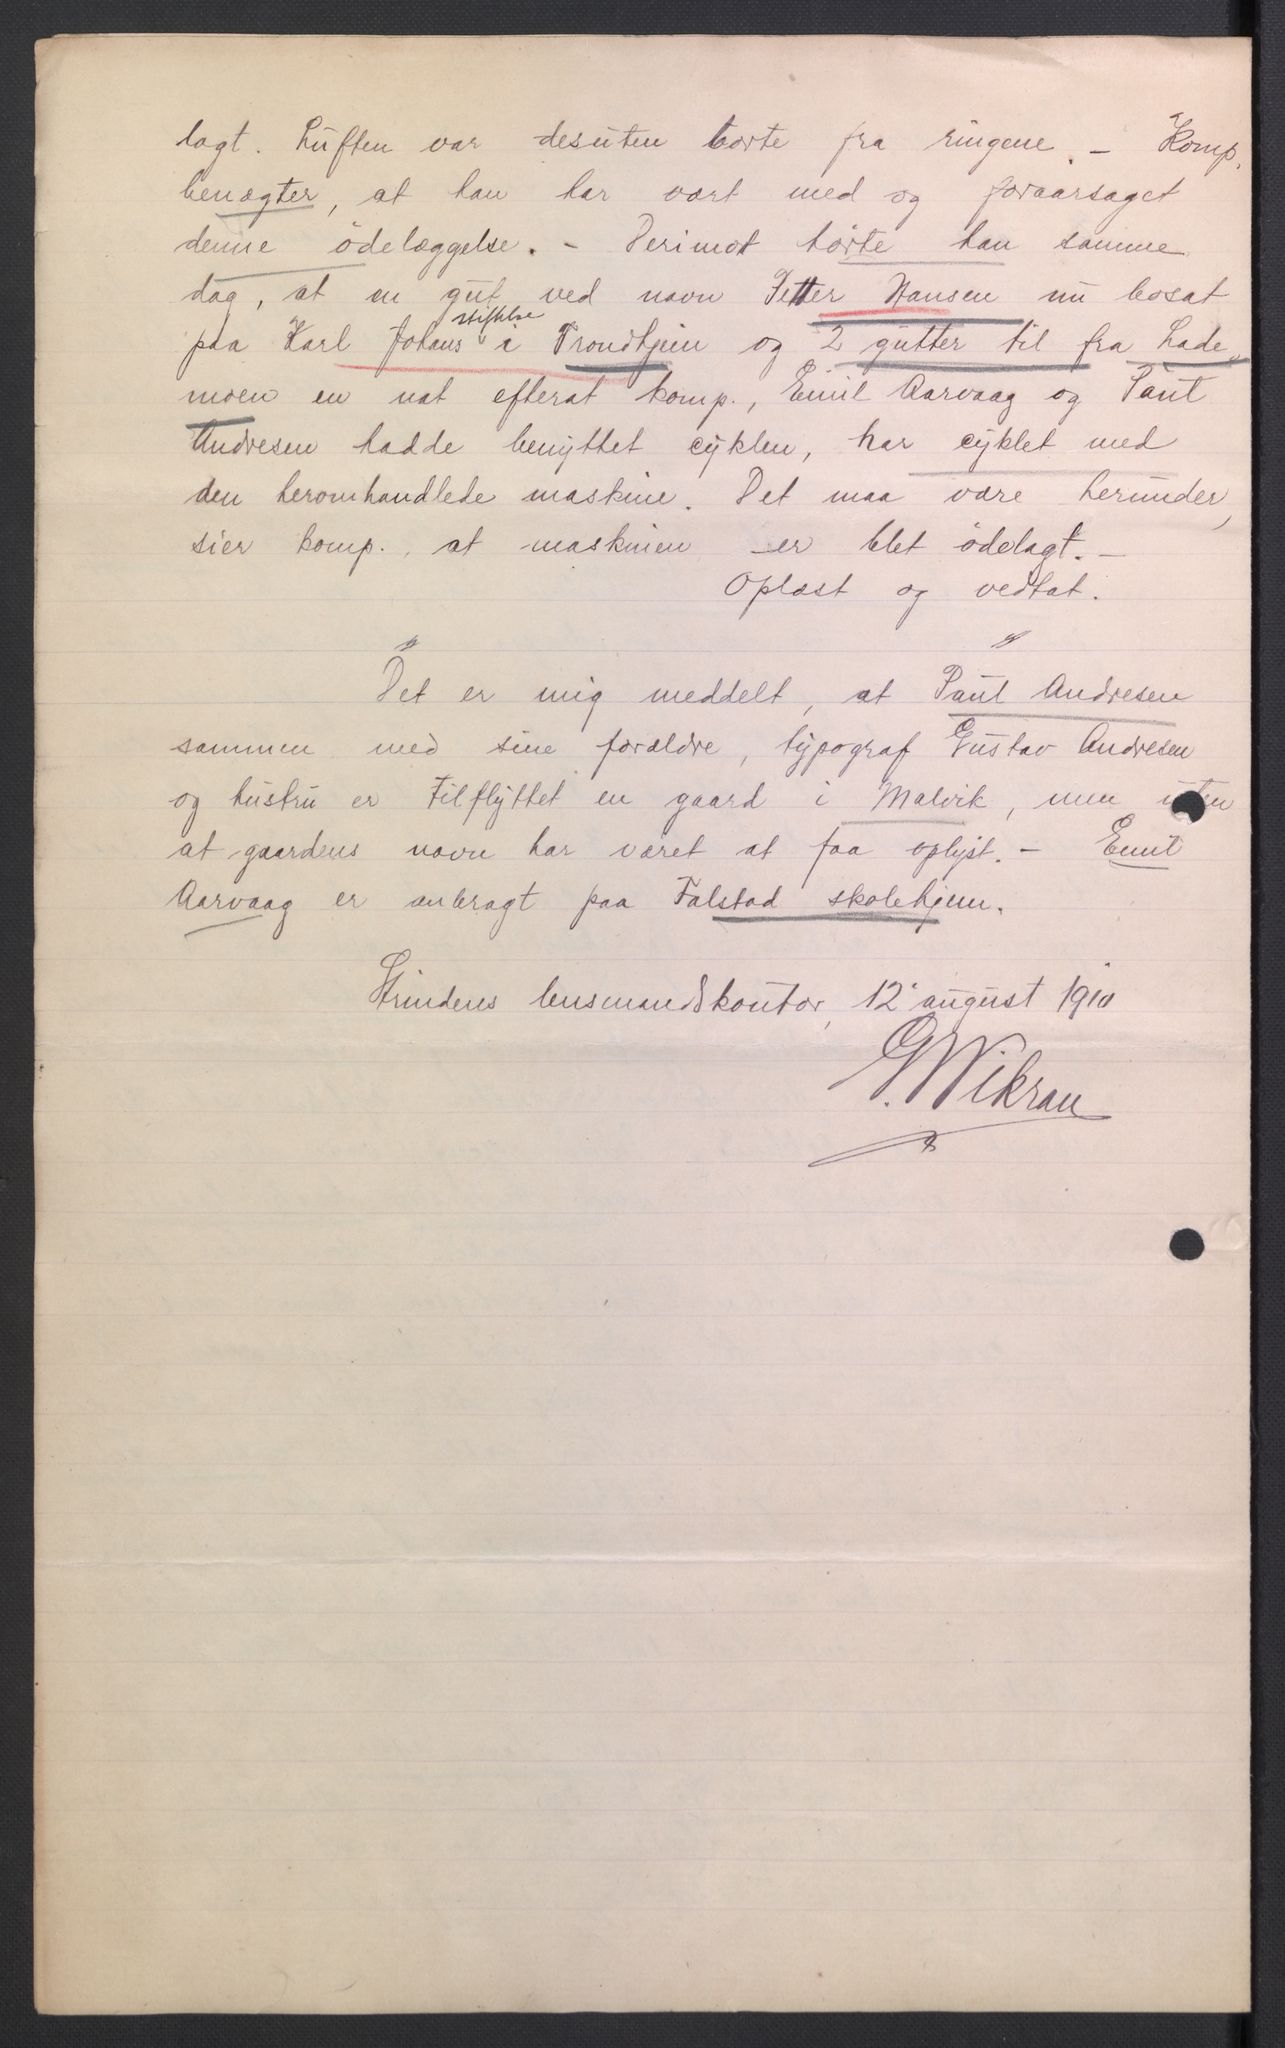 lagt. Luften var desuten borte fra ringene. - Komp.
benægter, at han har vært med og foraarsaget
denne ödelæggelse. - Derimot hörte han samme
dag, at en gut ved navn Petter Hansen nu bosat
paa Karl Johans stiftelse i Trondhjem og 2 gutter til fra Lade
moen en nat efterat komp., Emil Aarvaag og Paul
Andresen hadde benyttet cyklen, har cyklet med
den heromhandlede maskine. Det maa være herunder,
sier komp., at maskinen er blet ödelagt. -
Oplæst og vedtat.
Det er mig meddelt, at Paul Andresen
sammen med sine forældre, typograf Gustav Andresen
og hustru er tilflyttet en gaard i Malvik, men uten
at gaardens navn har været at faa oplyst. - Emil
Aarvaag er anbragt paa Falstad skolehjem.
Strindens lensmandskontor, 12 august 1910
G. Wikran